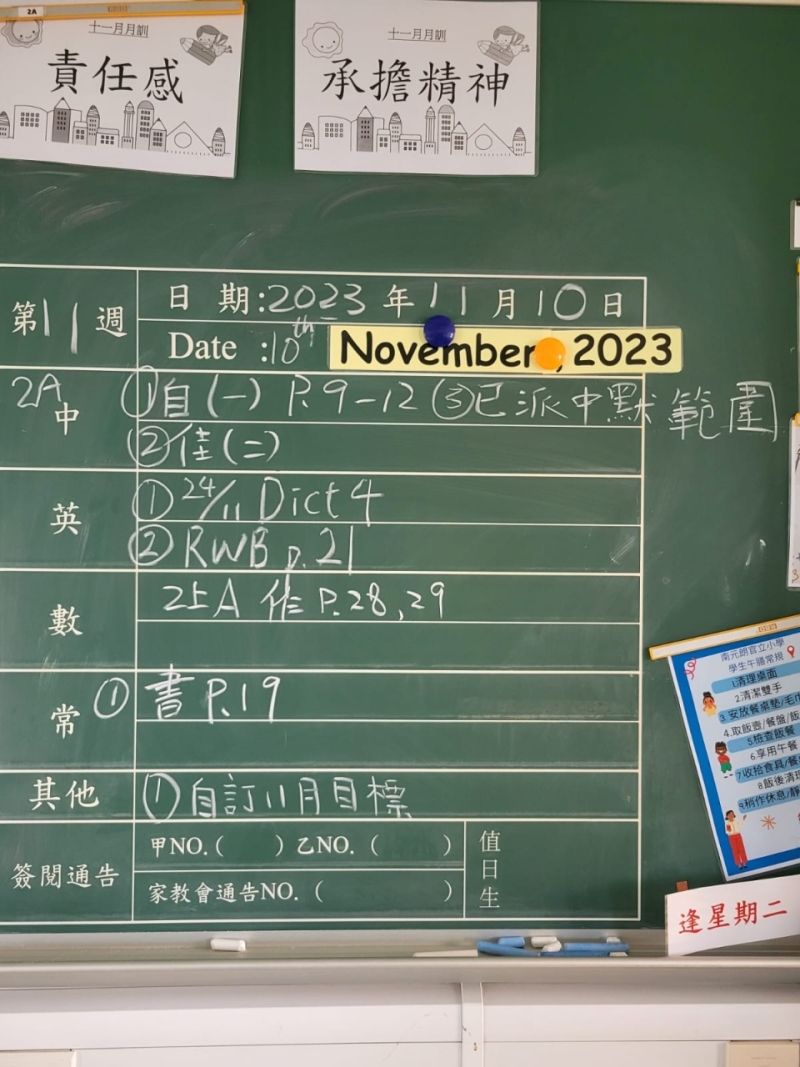 2A
十一月月訓
責任感
十一月月訓
承擔精神
第11週
日期:2023年11月10日
Date :10th November, 2023
2A中
①自(一) P.9-12 ③已派中默範圍
②佳(二)
英
①24/11 Dict 4
② RWB p.21
數
2上A 作 P.28,29
常
① 書 P.19
其他
① 自訂11月目標
簽閱通告
甲NO.( ) 乙NO. ( )
家教會通告NO. ( )
值日生
南元朗官立小學
學生午膳常規
1清理桌面
2.清潔雙手
3.安放餐桌墊/毛巾
4.取飯壺/餐盤/飯
5檢查飯餐
6.享用午餐
7收拾食具/餐
8飯後清理
9.稍作休息/靜
逢星期二